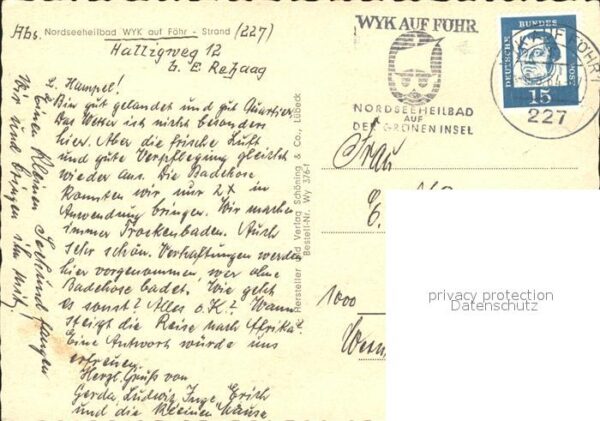 Abs. Nordseeheilbad WYK auf Föhr - Strand (227)
Halligweg 12
b. E
L. Hampel!
Bin gut gelandet und gut Quartier.
Das Wetter ist nicht besonders
hier. Aber die frische Luft
und gute Verpflegung gleicht
wieder aus. Die Badehose
konnten wir nur 2x in
Anwendung bringen. Wir machen
immer Trockenbaden. Auch
sehr schön. Verhaftungen werden
hier vorgenommen wer ohne
Badehose badet. Wie geht
es sonst? Alles o.K.? Wann
steigt die Reise nach Afrika?
Eine Antwort würde uns
erfreuen.
Herzl. Gruß von
Gerda, Ludwig, Inge, Erich
und die kleinen Mäuse
Einen kleinen Seehund fangen
wir und bringen ihn mit!
Hersteller und Verlag Schöning & Co., Lübeck
Bestell-Nr. Wy 376-f
WYK AUF FÖHR
NORDSEEHEILBAD
AUF
DER GRÜNEN INSEL
DEUTSCHE BUNDESPOST
15
WYK AUF FÖHR 1
227
Frau
E.
1000
privacy protection
Datenschutz